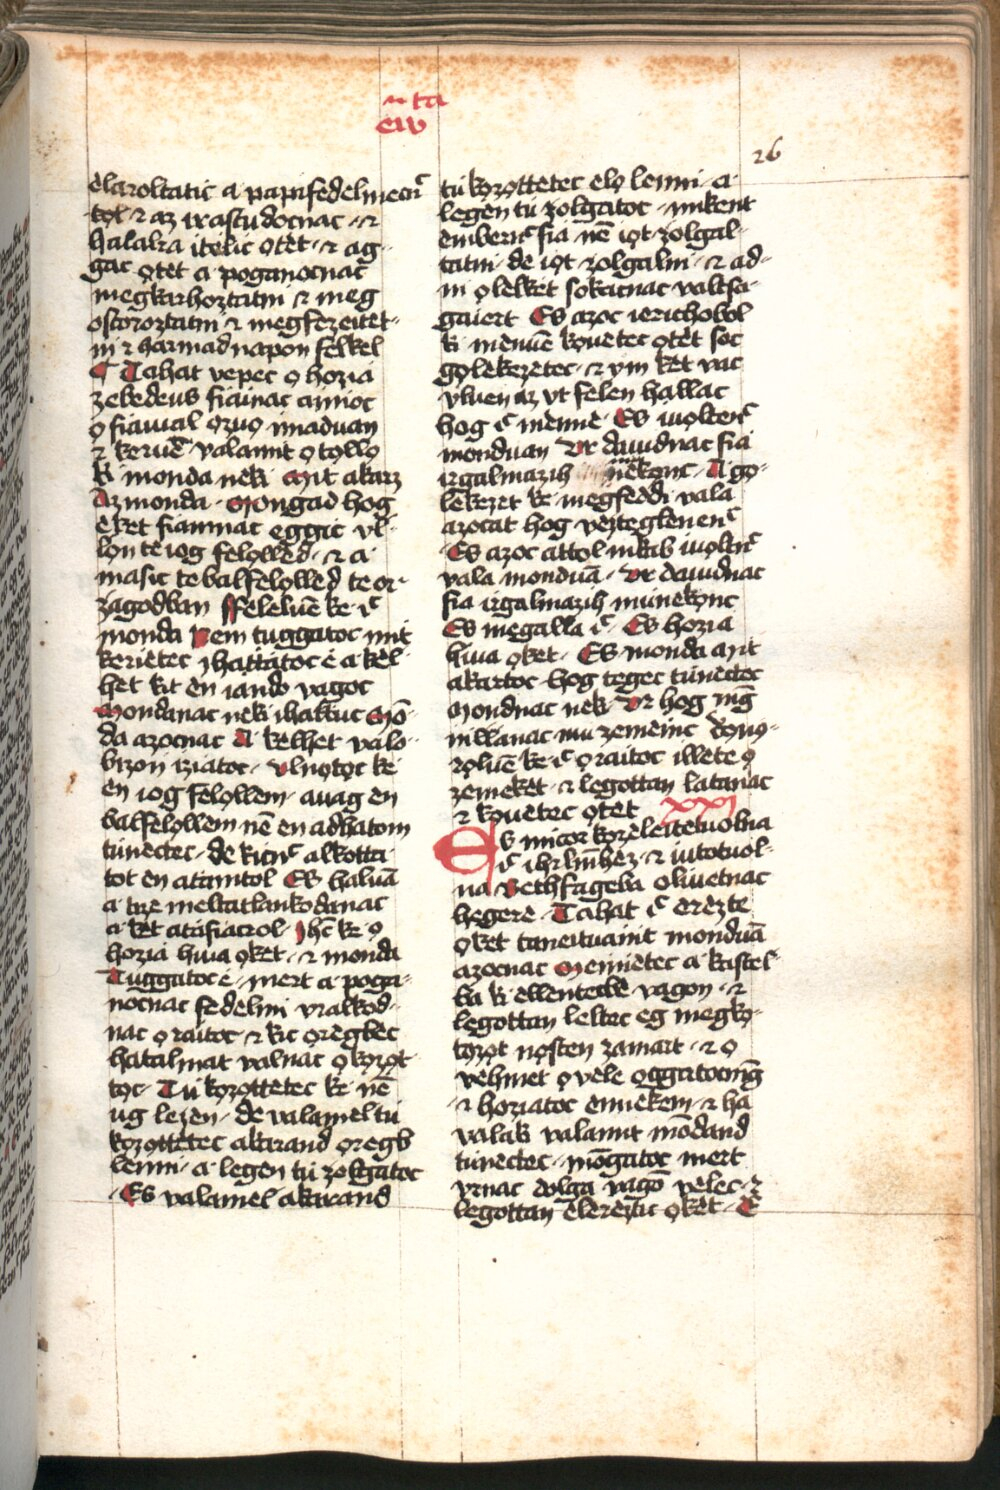 ń ta
eiv
26
èlaroltatic a papifedelmecńc
tol ⁊ az iraſtudocnac · ⁊
halalra itelic otèt · ⁊ ag-
gac otèt a poganocnac
megkarhoztatni ⁊ meg
oſtoroztatni ⁊ megfezeitèt-
ni ⁊ harmad napon felkel
Tahat vepec o hozia
zebedeus fiainac annioc
o fiaiual ozuo imaduan
⁊ keruē valamit o tollo
ki monda neki Mit akarz
Az monda · Mongad hog
e ket fiaimac eggic vl-
lon te iog felolled · ⁊ a
maſic te balfelolled te or-
zagodban Ffeleluē ke ic̄
monda Nem tuggatoc mit
kerietec ihattatoc e a kel-
het kit en iando vagoc
Mondanac neki ihatiuc Mō-
da azocnac A kelhet valo-
bizon iziatoc · vlnotoc ke
en iog felollem · auag en
balfelollem nē en adnatom
tunectec · de kicnc̄ alkotta
tot en atamtol Es haluā
a tize meltatlankodanac
a ket atafiacrol · Ihc̄ ke o
hozia hiua oket · ⁊ monda
Tuggatoc e · mert a poga-
nocnac fedelmi vralkod-
nac o raitoc · ⁊ kic oregbec
hatalmat valnac o kozot-
toc · Tu kozottetec ke nē
ug lezen · de valamel tu
kozottetec akarand oregb
lenni · a legen tu zolgatoc
Es valamel akarand
tu kozottetec elo lenni · a
legen tu zolgatoc · mikent
embernc̄ fia nē iot zolgal-
tatni · de iot zolgalni · ⁊ ad-
ni o lelket sokacnac valtſa-
gaiert Es azoc ierichobol
ki menuē kouetec otèt soc
golekezetec · ⁊ ym ket vac
vluen az vt felen hallac
hog ic̄ menne · Es iuoltenc̄
monduan Vr dauidnac fia
irgalmazih mūnekonc · A go-
lekezet ke megfeddi vala
azocat hog vezteglenenc̄
Es azoc attol inkab iuoltnc̄
vala monduā · Vr dauidnac
fia irgalmazih munekonc
Es megalla ic̄ · Es hozia
hiua oket · Es monda mit
akartoc hog tegec tunectec
Mondnac neki Vr hog mēg
nillanac mu zemeinc konio-
roluē ke ic̄ o raitoc illete o
zemeket · ⁊ legottan latanac
⁊ kouetec otèt xxi
Es micor kozeleitetuolna
ic̄ ihrlmhez · ⁊ iutotuol-
na Bethfageba oliuetnac
hegere · Tahat ic̄ erezte
oket taneituanit monduā
azocnac Mennietec a kaſtel-
ba ki ellentecbe vagon · ⁊
legottan leltec eg megko-
tozot noſten zamart · ⁊ o
vehmet o vele oggatocmēg
⁊ hoziatoc ennekem · ⁊ ha
valaki valamit mōdand
tunectec · mōgatoc mert
vrnac dolga vagō velec · ⁊
legottan elerezſic oket · E